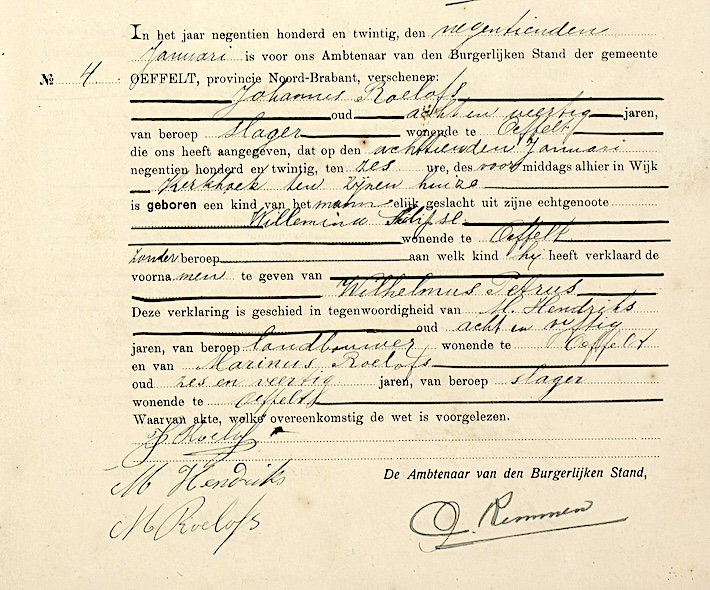 In het jaar negentien honderd en twintig, den negentienden
Januari is voor ons Ambtenaar van den Burgerlijken Stand der gemeente
№ 4 OEFFELT, provincie Noord-Brabant, verschenen:
Johannes Roelofs
oud acht en veertig jaren,
van beroep slager wonende te Oeffelt
die ons heeft aangegeven, dat op den achttienden Januari
negentien honderd en twintig, ten zes ure, des voormiddags alhier in Wijk
Kerkhoek ten zijnen huize
is geboren een kind van het mannelijk geslacht uit zijne echtgenoote
Willemina
wonende te Oeffelt
zonder beroep aan welk kind hij heeft verklaard de
voornamen te geven van
Wilhelmus Petrus
Deze verklaring is geschied in tegenwoordigheid van M. Hendriks
oud acht en vijftig
jaren, van beroep landbouwer wonende te Oeffelt
en van Marinus Roelofs
oud zes en veertig jaren, van beroep slager
wonende te Oeffelt
Waarvan akte, welke overeenkomstig de wet is voorgelezen.
J Roelofs
M Hendriks
De Ambtenaar van den Burgerlijken Stand,
M Roelofs
Remmen